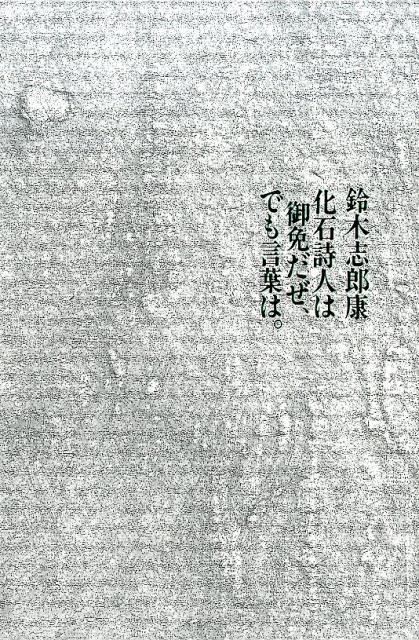 鈴木志郎康
化石詩人は
御免だぜ、
でも言葉は。